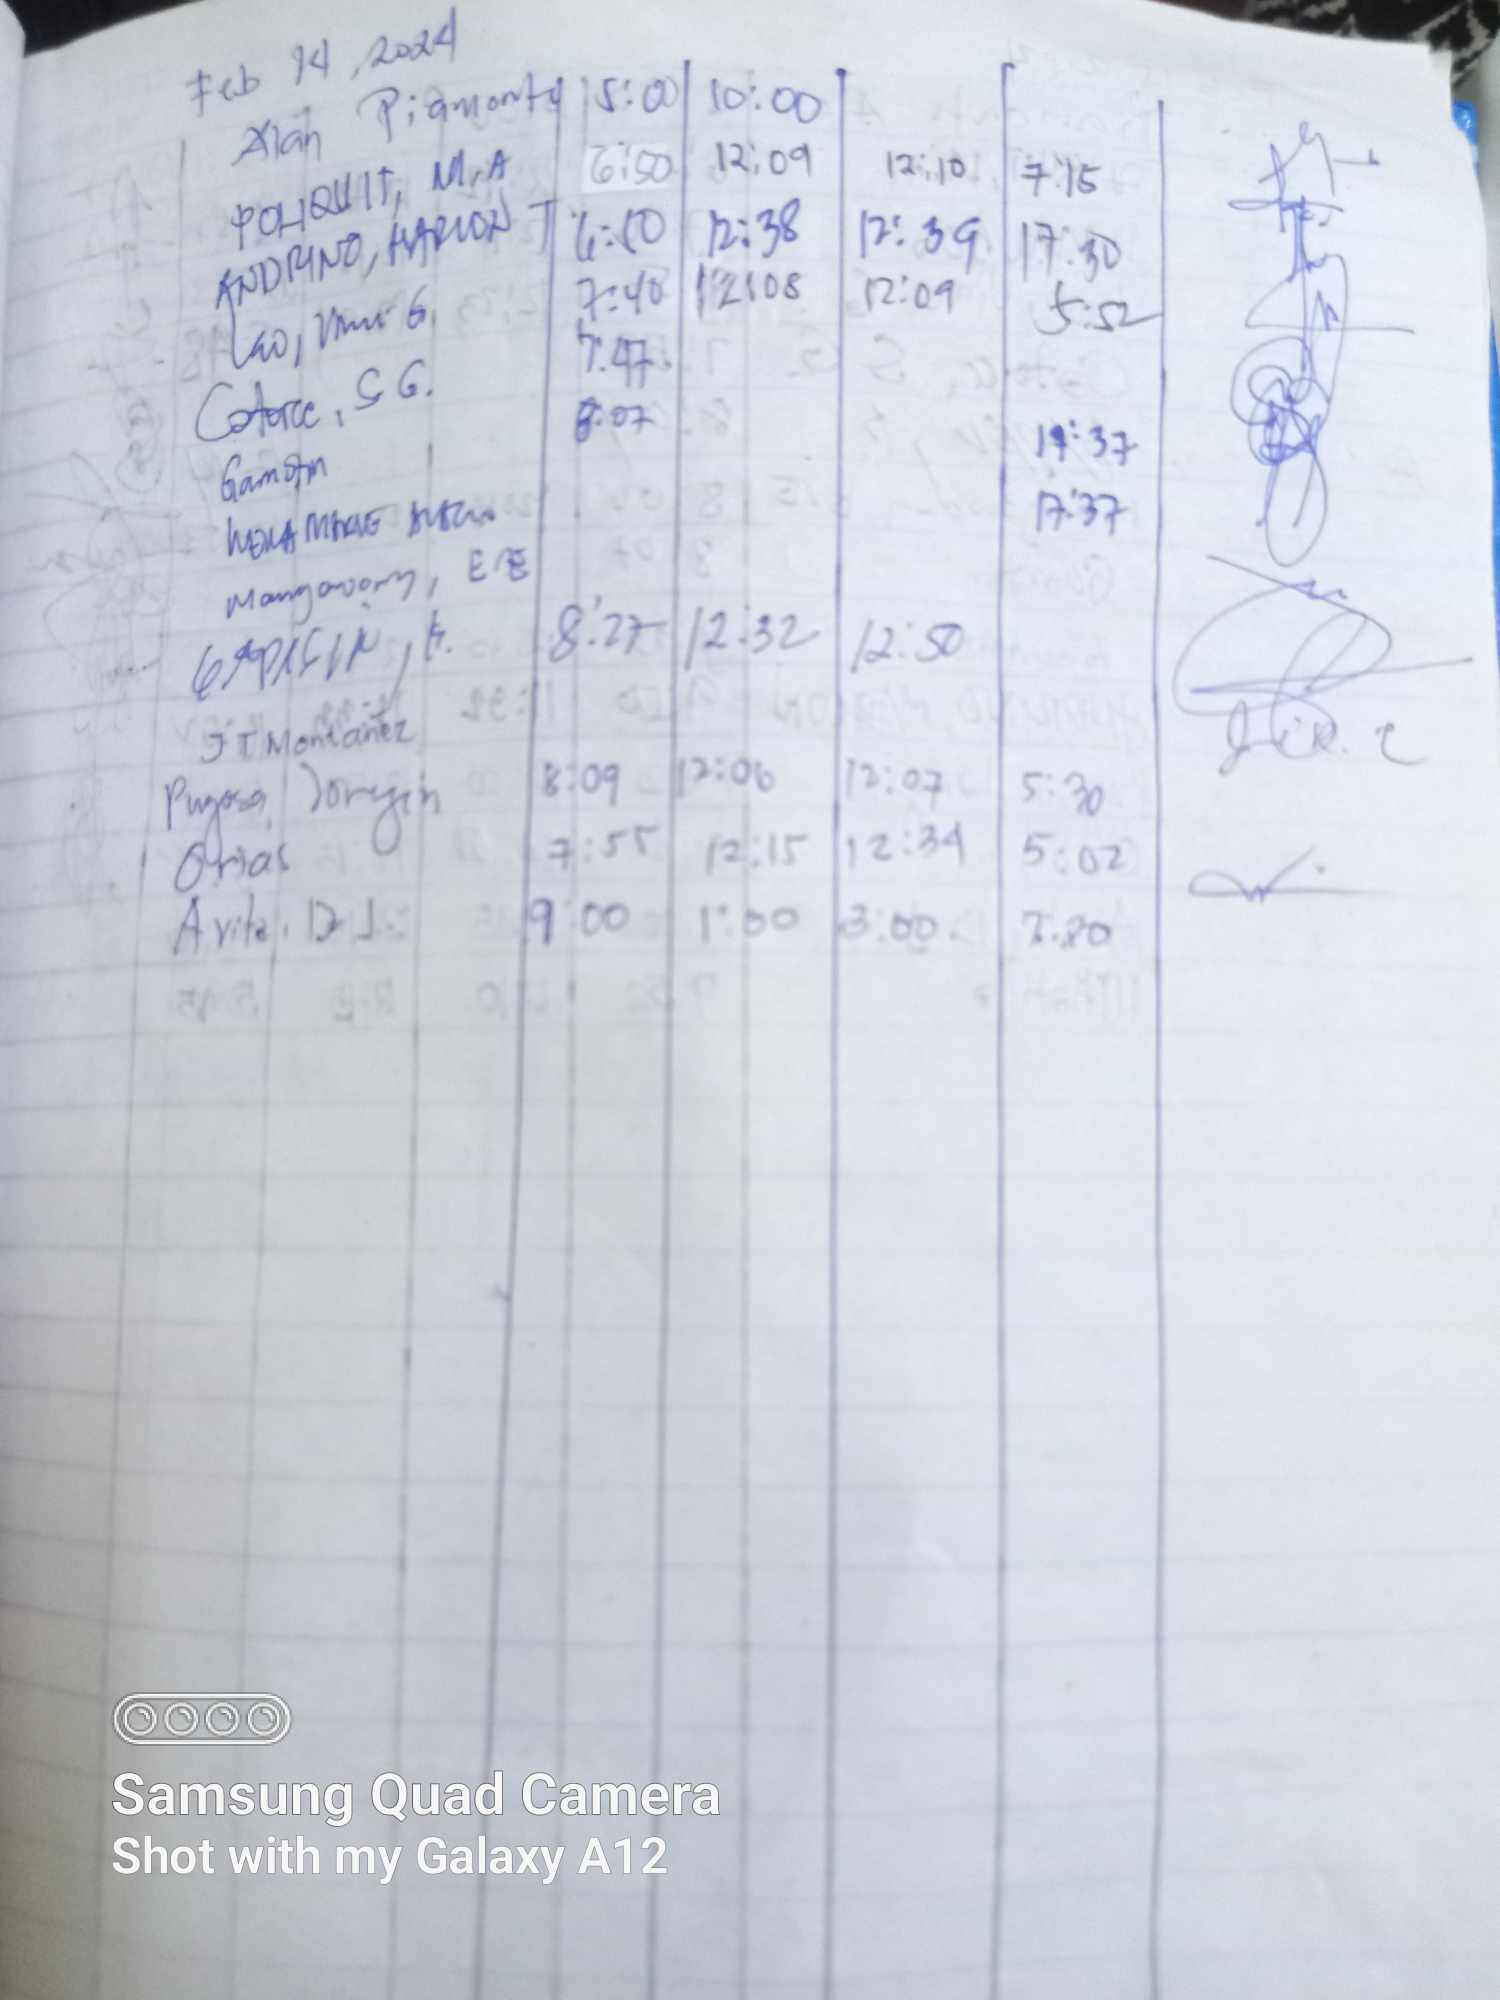 Feb 14, 2024
Alan Piamonte 5:00 10:00
POLIQUIT, M.A 6:50 12:09 12:10 7:15
ANDRINO, MARION T 6:50 12:38 12:39 17:30
Lao, G. 7:40 12:08 12:09 5:52
Catorce, S G. 7:47
Gamotin 8:07 17:37
MARIE 17:37
E E
GAPISIN, K. 8:27 12:32 12:50
JT Montañez
Pugosa, Jomyin 8:09 12:06 12:07 5:30
Orias 7:55 12:15 12:34 5:02
Avila, D J. 9:00 1:00 3:00 7:20
Samsung Quad Camera
Shot with my Galaxy A12